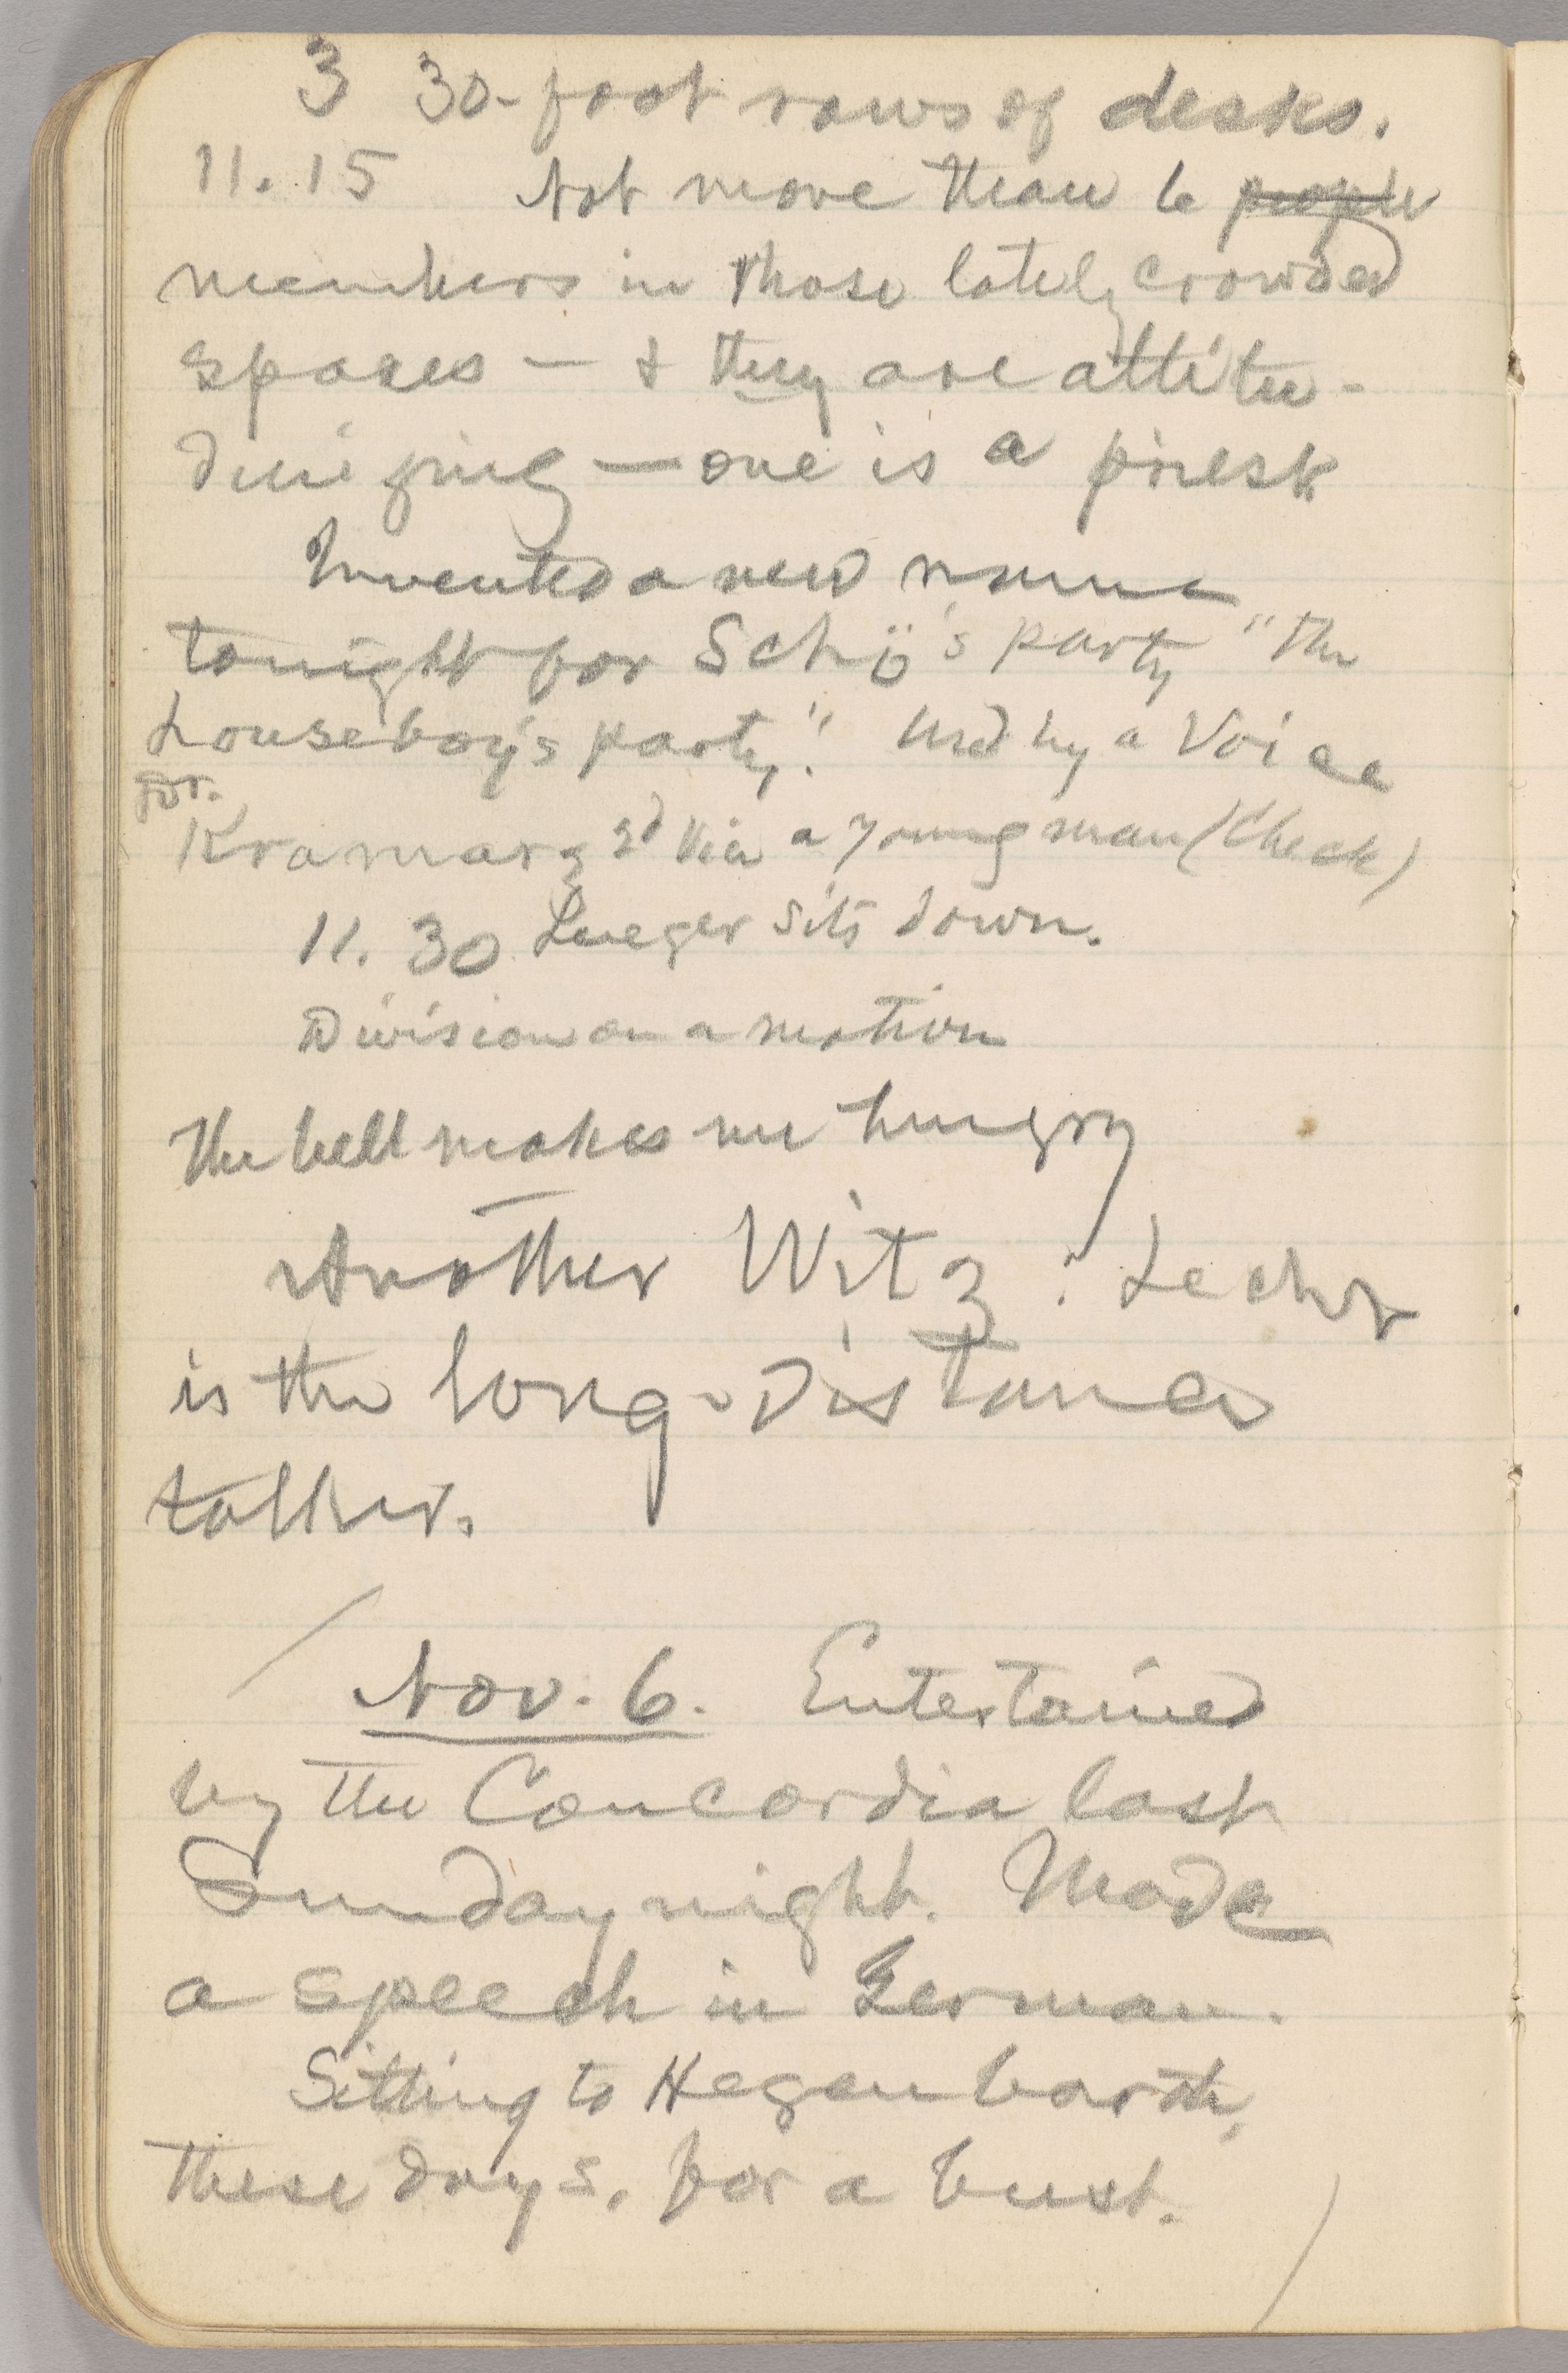 3 30-foot rows of desks.
11.15 Not more than 6 people
members in those lately crowded
spaces — & they are attitu-
dinizing — one is a priest
Invented a new name
tonight for Schö's party "the
houseboy's party." Used by a Voice
for.
Kramarz 2d Vice a young man (Check)
11.30 Lueger sits down.
Division on a motion
The bell makes me hungry
Another Witz: Lecher
is the long-distance
talker.
Nov. 6. Entertained
by the Concordia last
Sunday night. Made
a speech in German.
Sitting to Hegenbarth,
these days, for a bust.